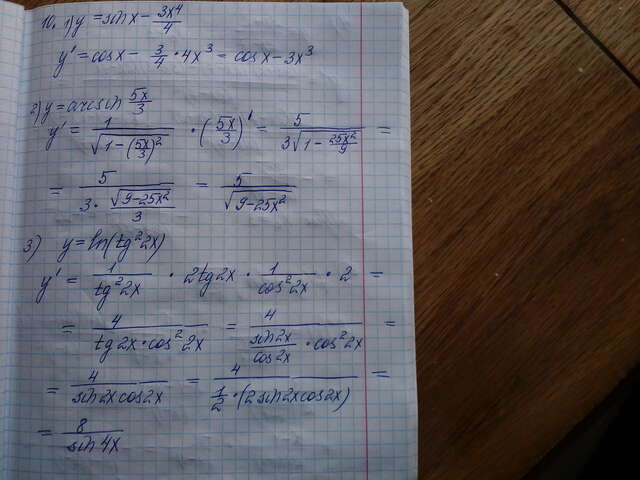 10. 1) y = sin x - 3x⁴/4
y' = cos x - 3/4 · 4x³ = cos x - 3x³
2) y = arcsin 5x/3
y' = 1/√(1-(5x/3)²) · (5x/3)' = 5/(3√(1 - 25x²/9)) =
= 5/(3 · √(9-25x²)/3) = 5/√(9-25x²)
3) y = ln(tg²2x)
y' = 1/tg²2x · 2tg2x · 1/cos²2x · 2 =
= 4/(tg2x · cos²2x) = 4/(sin2x/cos2x · cos²2x) =
= 4/(sin2x cos2x) = 4/(1/2 · (2sin2x cos2x)) =
= 8/sin4x